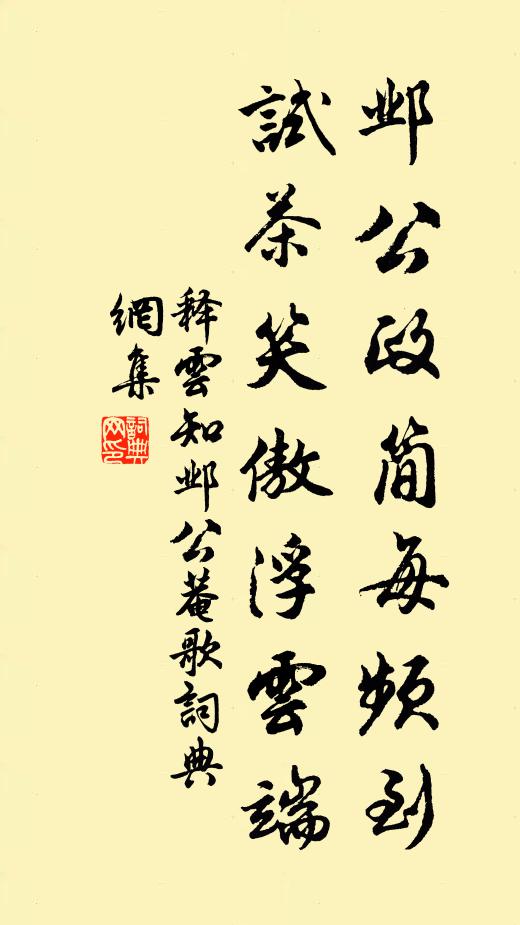 邺公政简每频到
試茶笑傲浮雲端
释雲知邺公菴歌詞典
網集
詞典
网印